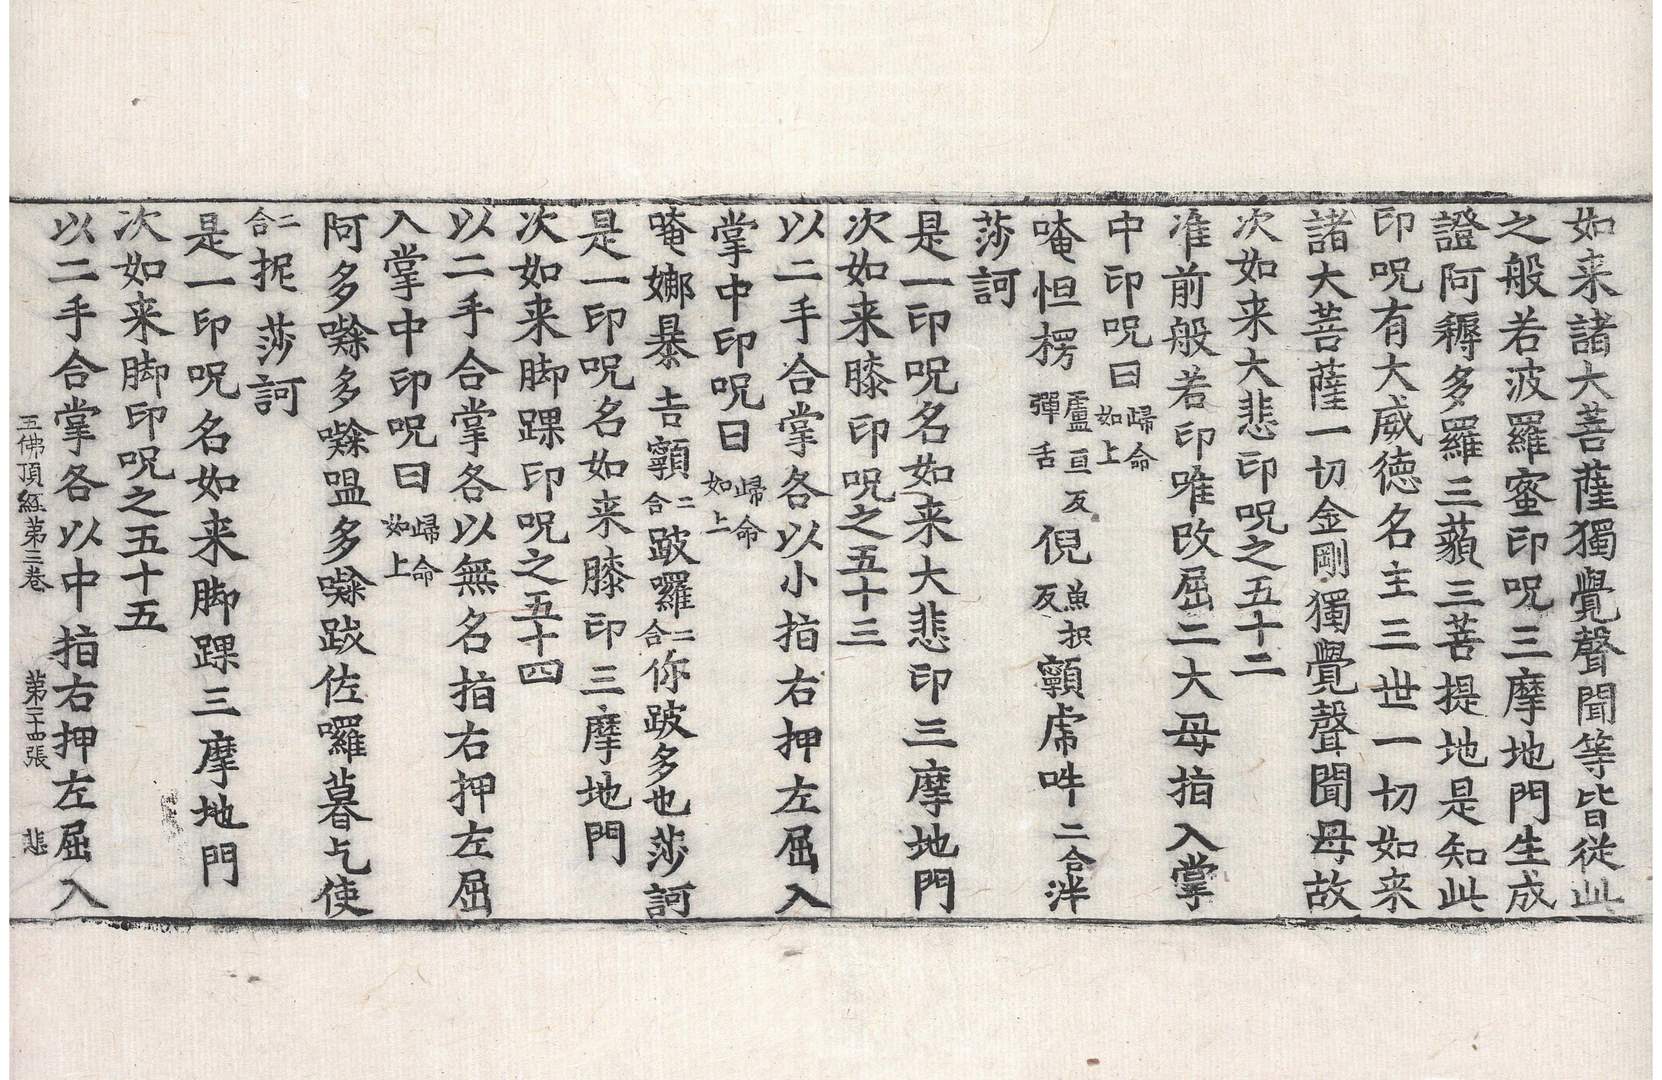 如来諸大菩薩獨覺聲聞等皆從此
之般若波羅蜜印呪三摩地門生成
證阿耨多羅三藐三菩提地是知此
印呪有大威德名主三世一切如来
諸大菩薩一切金剛獨覺聲聞母故
次如来大悲印呪之五十二
准前般若印唯改屈二大母指入掌
中印呪曰歸命如上
唵怛楞盧亘反彈舌倪魚枳反顐虏吽二合泮
莎訶
是一印呪名如来大悲印三摩地門
次如来膝印呪之五十三
以二手合掌各以小指右押左屈入
掌中印呪曰歸命如上
唵娜暴去顐二合跛囉二合你跛多也莎訶
是一印呪名如来膝印三摩地門
次如来脚踝印呪之五十四
以二手合掌各以無名指右押左屈
入掌中印呪曰歸命如上
阿多多嗢多跋佐囉暮乞使
二合抳莎訶
是一印呪名如来脚踝三摩地門
次如来脚印呪之五十五
以二手合掌各以中指右押左屈入
五佛頂經第三卷 第二十四張 悲